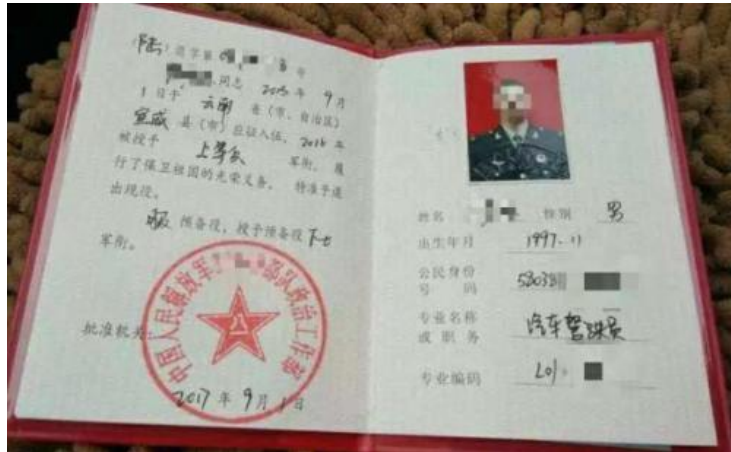 (陆)退字第 号
同志 2015 年 9 月
1 日于 云南 省(市、自治区)
宣威 县(市)应征入伍,2016 年
被授予 上等兵 军衔,履
行了保卫祖国的光荣义务。特准予退
出现役。
服 预备役,授予预备役 下士
军衔。
中国人民解放军 部队政治工作部
批准机关:
2017 年 9 月 1 日
姓名 性别 男
出生年月 1997.11
公民身份
号 码 53038
专业名称 汽车驾驶员
或 职 务
专业编码 201